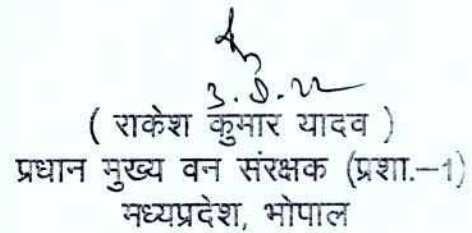 ( राकेश कुमार यादव )
प्रधान मुख्य वन संरक्षक (प्रशा.–1)
मध्यप्रदेश, भोपाल